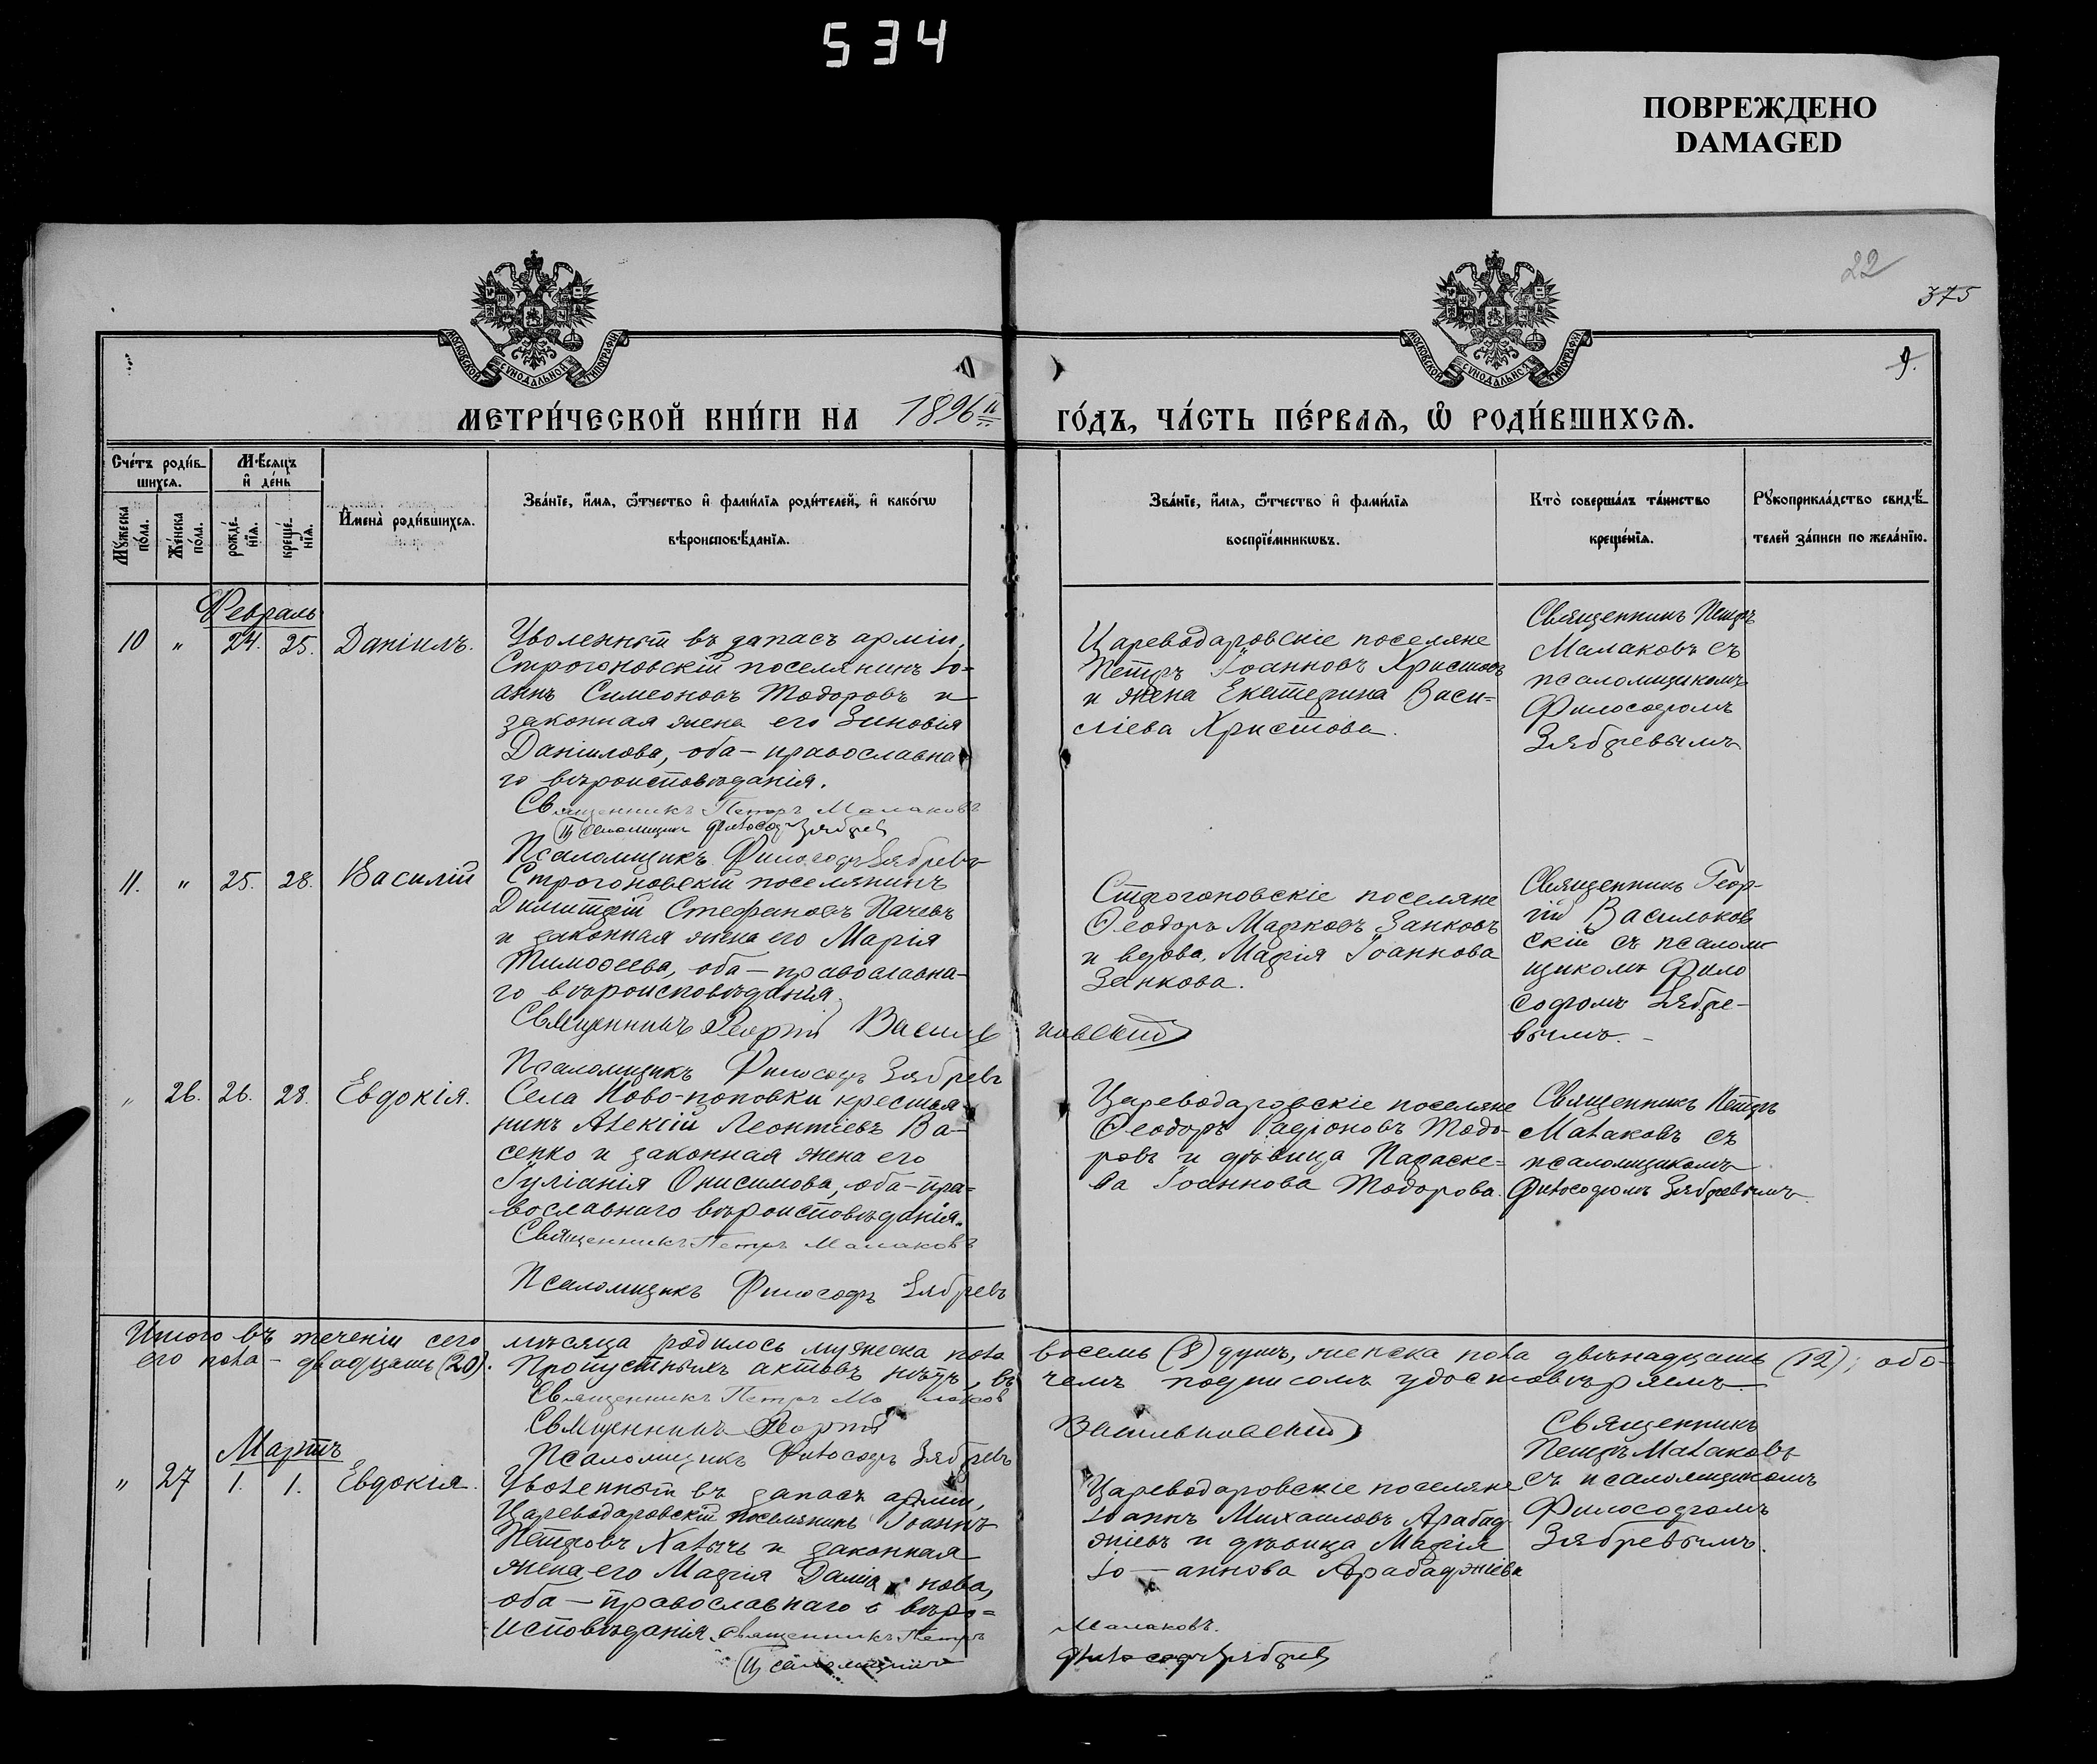 534
ПОВРЕЖДЕНО
DAMAGED
22
375
9.
МОСКОВСКОЙ СѴНОДАЛЬНОЙ ТИПОГРАФІИ
МОСКОВСКОЙ СѴНОДАЛЬНОЙ ТИПОГРАФІИ
МЕТРИ́ЧЕСКОЙ КНИ́ГИ НА 1896й ГО́ДЪ, ЧА́СТЬ ПЕ́РВАѦ, Ѡ РОДИ́ВШИХСѦ.
Сче́тъ роди́в-
шихсѧ.
Мѣ́сѧцъ
и де́нь
Мꙋ́жеска
по́ла.
Же́нска
по́ла.
рожде́-
нїѧ.
креще́-
нїѧ.
Имена̀ роди́вшихсѧ.
Зва́нїе, и́мѧ, ѻ́тчество и фами́лїѧ роди́телей, и како́гѡ
вѣроисповѣ́данїѧ.
Зва́нїе, и́мѧ, ѻ́тчество и фами́лїѧ
воспрїе́мникѡвъ.
Кто̀ соверша́лъ та́инство
креще́нїѧ.
Рꙋкоприкла́дство свидѣ́-
телей за́писи по жела́нїю.
Февраль
10 " 24. 25. Даніилъ.
Уволенный въ запасъ арміи,
Строгоновскій поселянинъ Іо-
аннъ Симеоновъ Тодоровъ и
законная жена его Зиновія
Даніилова, оба – православна-
го вѣроисповѣданія.
Священникъ Петръ Малаковъ
Псаломщикъ Философъ Зябревъ
Царевдаровскіе поселяне
Петръ Іоанновъ Христовъ
и жена Екатерина Васи-
ліева Христова.
Священникъ Петръ
Малаковъ съ
псаломщикомъ
Философомъ
Зябревымъ
Псаломщикъ Философъ Зябревъ
11. " 25. 28. Василій
Строгоновскій поселянинъ
Димитрій Стефановъ Пачевъ
и законная жена его Марія
Тимоѳеева, оба – православна-
го вѣроисповѣданія.
Священникъ Георгій Васильковскій
Псаломщикъ Философъ Зябревъ
Строгоновскіе поселяне
Ѳеодоръ Марковъ Занковъ
и вдова Марія Іоаннова
Занкова.
Священникъ Геор-
гій Васильков
скій съ псалом-
щикомъ Фило
софомъ Зябре-
вымъ. –
" 26. 26. 28. Евдокія.
Села Ново-поповки крестья-
нинъ Алексій Леонтіевъ Ва-
сепко и законная жена его
Іуліанія Онисимова, оба – пра-
вославнаго вѣроисповѣданія.
Священникъ Петръ Малаковъ
Псаломщикъ Философъ Зябревъ
Цареводаровскіе поселяне
Ѳеодоръ Радіоновъ Тодо-
ровъ и дѣвица Параске-
ва Іоаннова Тодорова.
Священникъ Петръ
Малаковъ съ
псаломщикомъ
Философомъ Зябревымъ
Итого въ теченіи сего мѣсяца родилось мужеска пола восемь (8) душъ, женска пола двѣнадцать (12); обо-
его пола – двадцать (20). Пропустныхъ актовъ нѣтъ, въ чемъ подписомъ удостовѣряемъ.
Священникъ Петръ Малаковъ
Священникъ Георгій Васильковскій
Псаломщикъ Философъ Зябревъ
Мартъ
" 27 1. 1. Евдокія.
Уволенный въ запасъ арміи,
Цареводаровскій поселянинъ Іоаннъ
Петровъ Халычь и законная
жена его Марія Даміанова,
оба – православнаго вѣро-
исповѣданія. Священникъ Петръ Малаковъ.
Псаломщикъ Философъ Зябревъ
Цареводаровскіе поселяне
Іоаннъ Михаиловъ Арабад-
жіевъ и дѣвица Марія
Іо – аннова Арабаджіева
Священникъ
Петръ Малаковъ
съ псаломщикомъ
Философомъ
Зябревымъ.